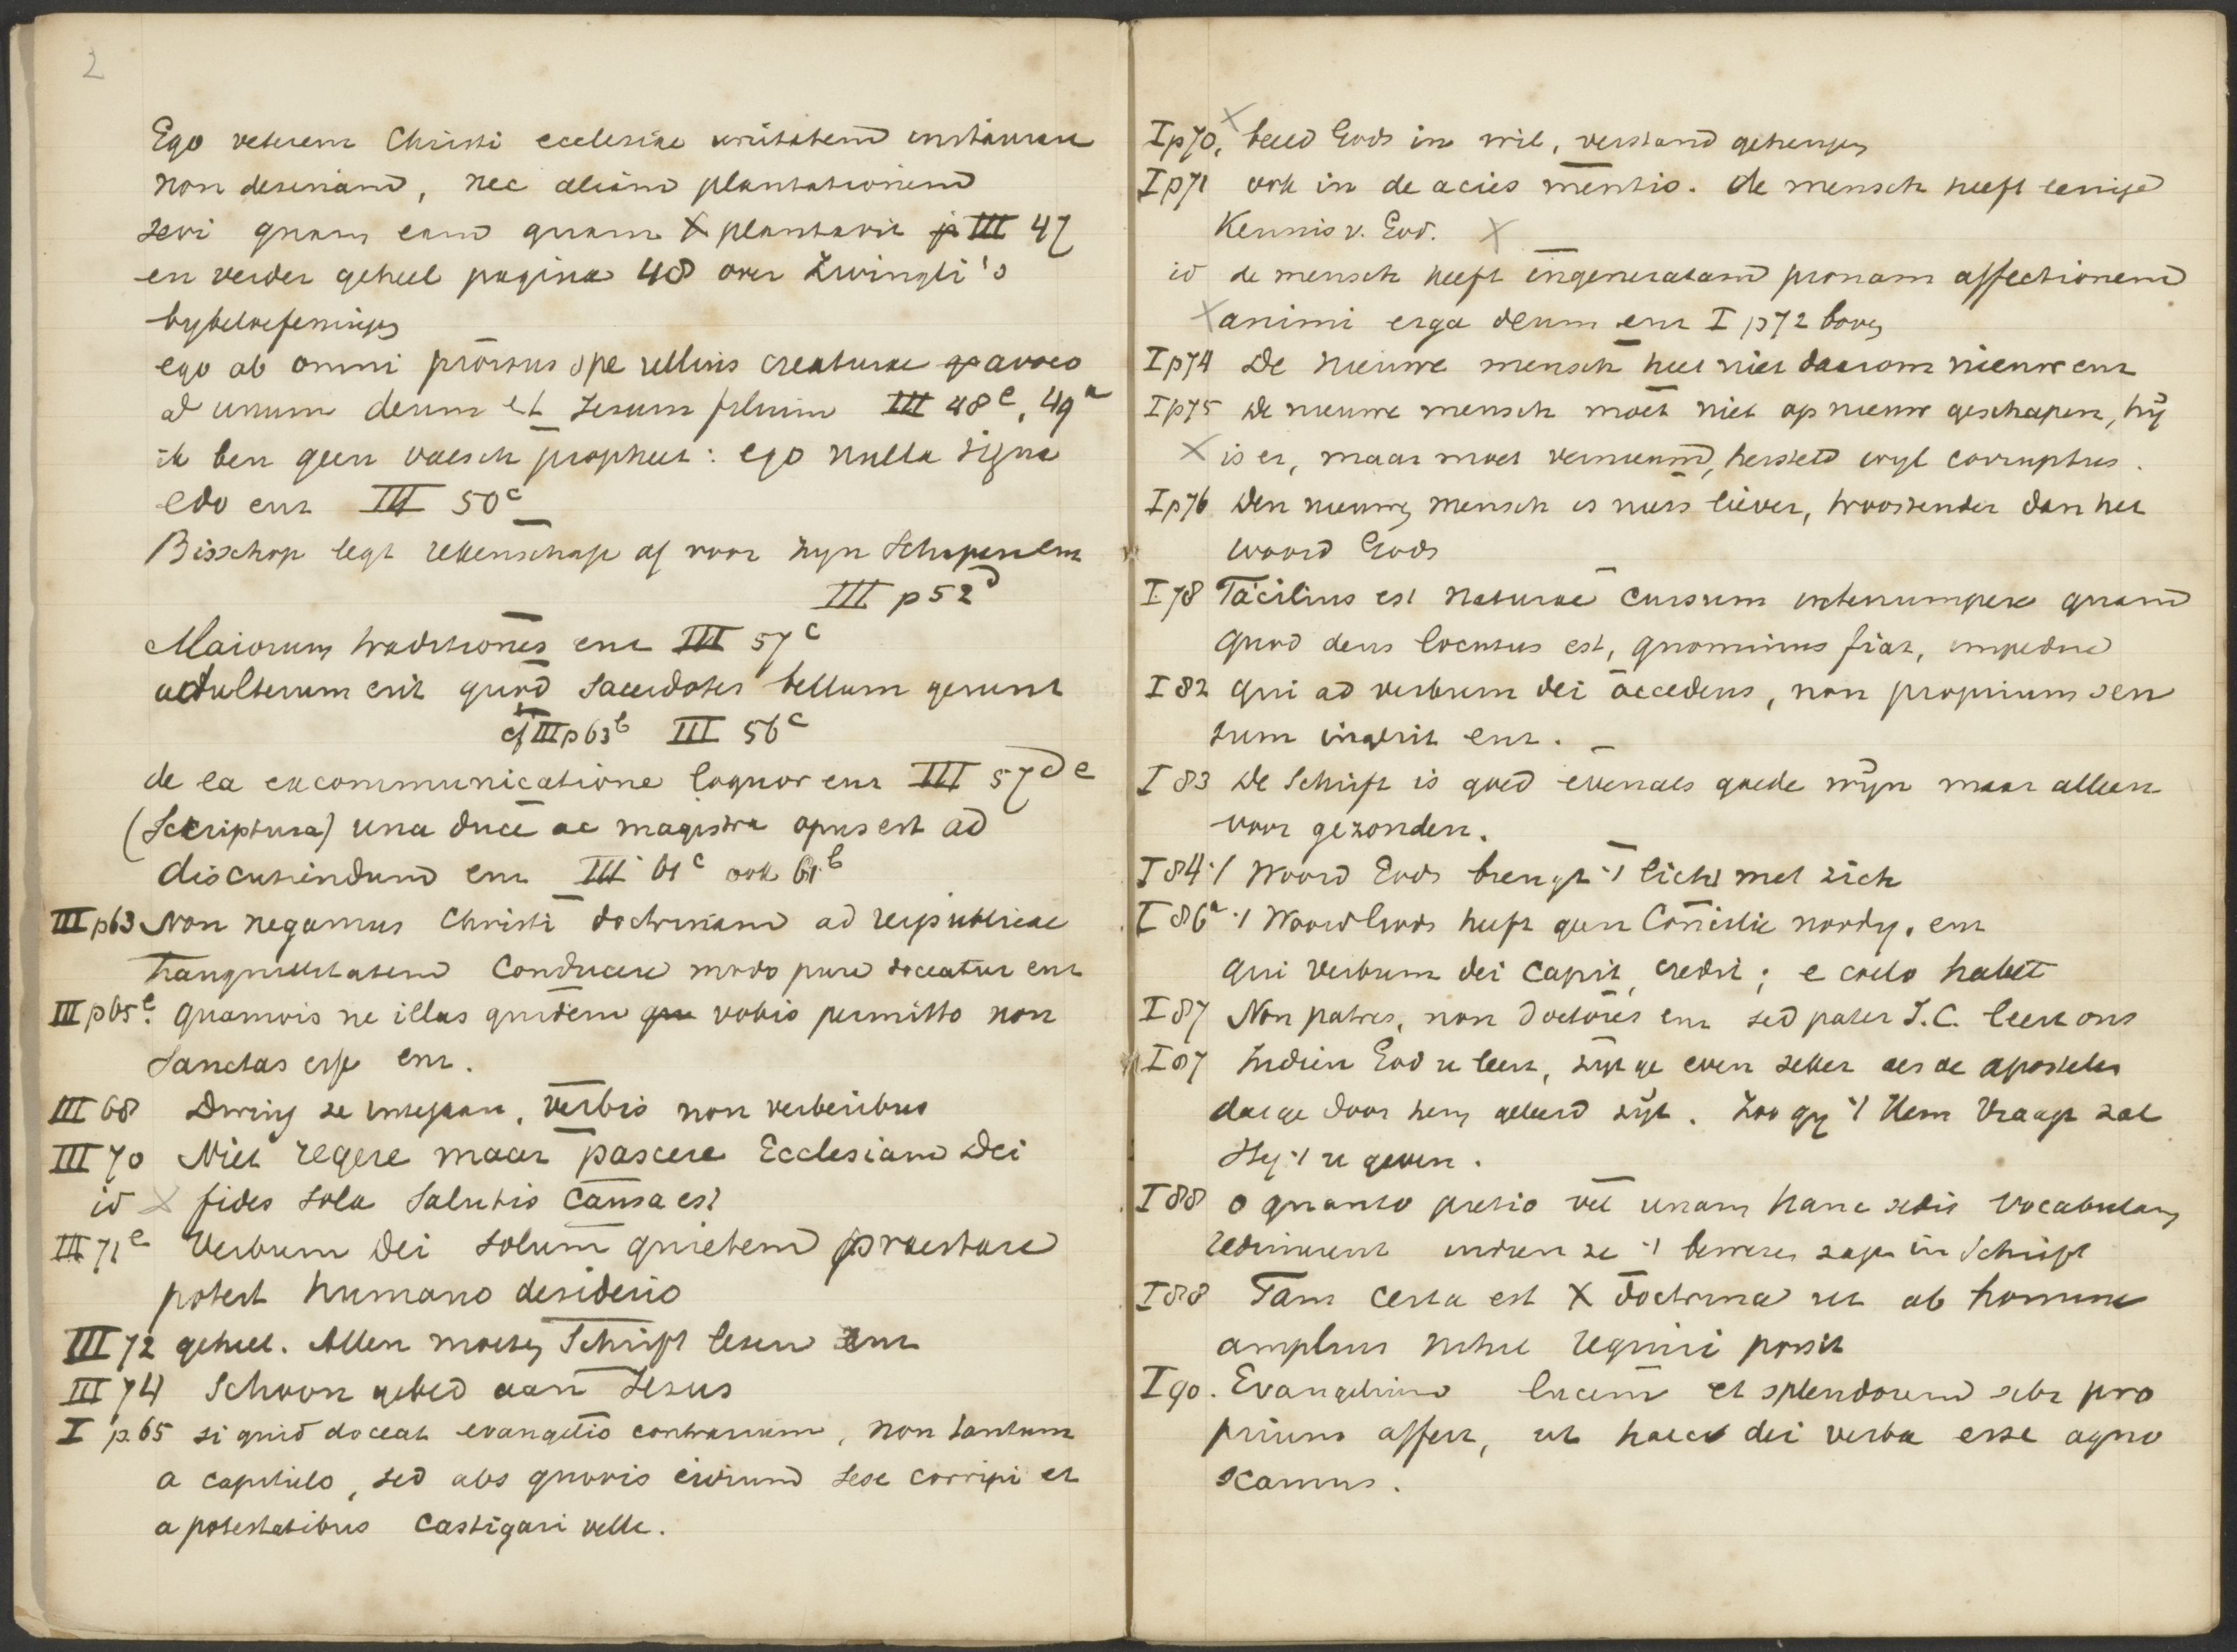 2
Ego veterem Christi ecclesiae unitatem instaurare
non desinam, nec aliam plantationem
sevi quam eam quam X plantavit III 47
en verder geheel pagina 48 over Zwingli's
bybeloefeningen
ego ab omni prorsus spe ullius creaturae avoco
ad unum deum et Jesum filium III 48c, 49a
ik ben geen valsch propheet: ego nulla signa
edo enz III 50c
Bisschop legt rekenschap af voor zyn Schapen enz
III p 52d
Maiorum traditiones enz III 57c
adulterum erit quod sacerdotes bellum gerunt
cf III p63b III 56c
de ea excommunicatione loquor enz III 57de
(Scriptura) una duce ac magistra opus est ad
discutiendum enz III 61c ook 61b
III p63 Non negamus Christi doctrinam ad reipublicae
tranquillitatem conducere modo pure doceatur enz
III p65e. quamvis ne illas quidem vobis permitto non
sanctas esse enz.
III 68 Dwing ze , verbis non verberibus
III 70 Niet regere maar pascere Ecclesiam Dei
id X fides sola salutis causa est
III 71e Verbum Dei solum quietem praestare
potest humano desiderio
III 72 geheel. Allen moeten Schrift lezen enz
III 74 Schoon gebed aan Jesus
I p.65 si quid doceat evangelio contrarium, non tantum
a capitulo, sed abs quovis civium sese corripi et
a potestatibus castigari velle.
I p70. X beeld Gods in wil, verstand geheugen
I p71 ook in de acies mentis. de mensch heeft eenige
Kennis v. God. X
id de mensch heeft ingeneratam pronam affectionem
X animi erga deum enz I p72 boven
I p74 De nieuwe mensch niet daarom nieuw enz
I p75 De nieuwe mensch moet niet op nieuw geschapen, hÿ
X is er, maar moet vernieuwd, hersteld wyl corruptus.
I p76 Den nieuwen mensch is niets liever, troostender dan het
woord Gods
I 78 Facilius est naturae cursum interrumpere quam
quod deus locutus est, quominus fiat, impedire
I 82 qui ad verbum dei accedens, non proprium sen
sum ingerit enz.
I 83 De Schrift is goed evenals goede wÿn maar alleen
voor gezonden.
I 84 't Woord Gods brengt 't licht met zich
I 86a 't Woord Gods heeft geen Concilie noodig. enz
qui verbum dei capit, credit; e coelo habet
I 87 Non patres, non doctores enz sed pater J.C. leert ons
I 87 Indien God u leert, zÿt ge even zeker als de apostelen
dat ge door hem geleerd zÿt. Zoo gy 't Hem vraagt zal
Hy 't u geven.
I 88 o quanto pretio vel unam hanc vocabulam
redimerent indien ze 't in Schrift
I 88 Tam certa est X doctrina ut ab homine
amplius nihil requiri possit
I 90. Evangelium lucem et splendorem sibi pro
prium affert, ut haec dei verba esse agno
scamus.